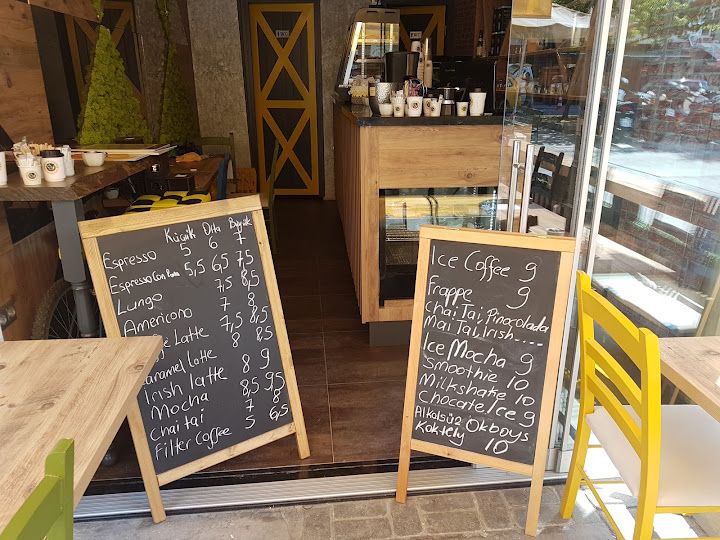 Küçük Orta Büyük
Espresso 5 6 7
Espresso Con Pana 5,5 6,5 7,5
Lungo 7,5 8,5
Americano 7 8
Latte 7,5 8,5
Caramel Latte 8 8,5
Irish Latte 8 9
Mocha 8,5 9,5
Chai tai 7 8
Filter Coffee 5 6,5
Ice Coffee 9
Frappe 9
Chai Tai, Pinacolada
Mai Tai, Irish....
Ice Mocha 9
Smoothie 10
Milkshake 10
Chocate Ice 9
Alkolsüz Okboys
Koktely 10